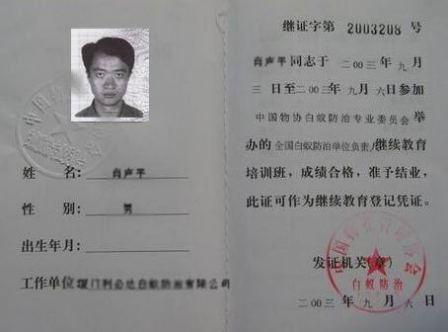 姓　　名：肖声平
性　　别：男
出生年月：
工作单位：厦门利必达白蚁防治有限公司
继证字第 2003208 号
肖声平同志于二00三年九月
三日至二00三年九月六日参加
中国物协白蚁防治专业委员会举
办的全国白蚁防治单位负责人继续教育
培训班，成绩合格，准予结业，
此证可作为继续教育登记凭证。
发证机关(章)
白蚁防治
二00三年九月六日